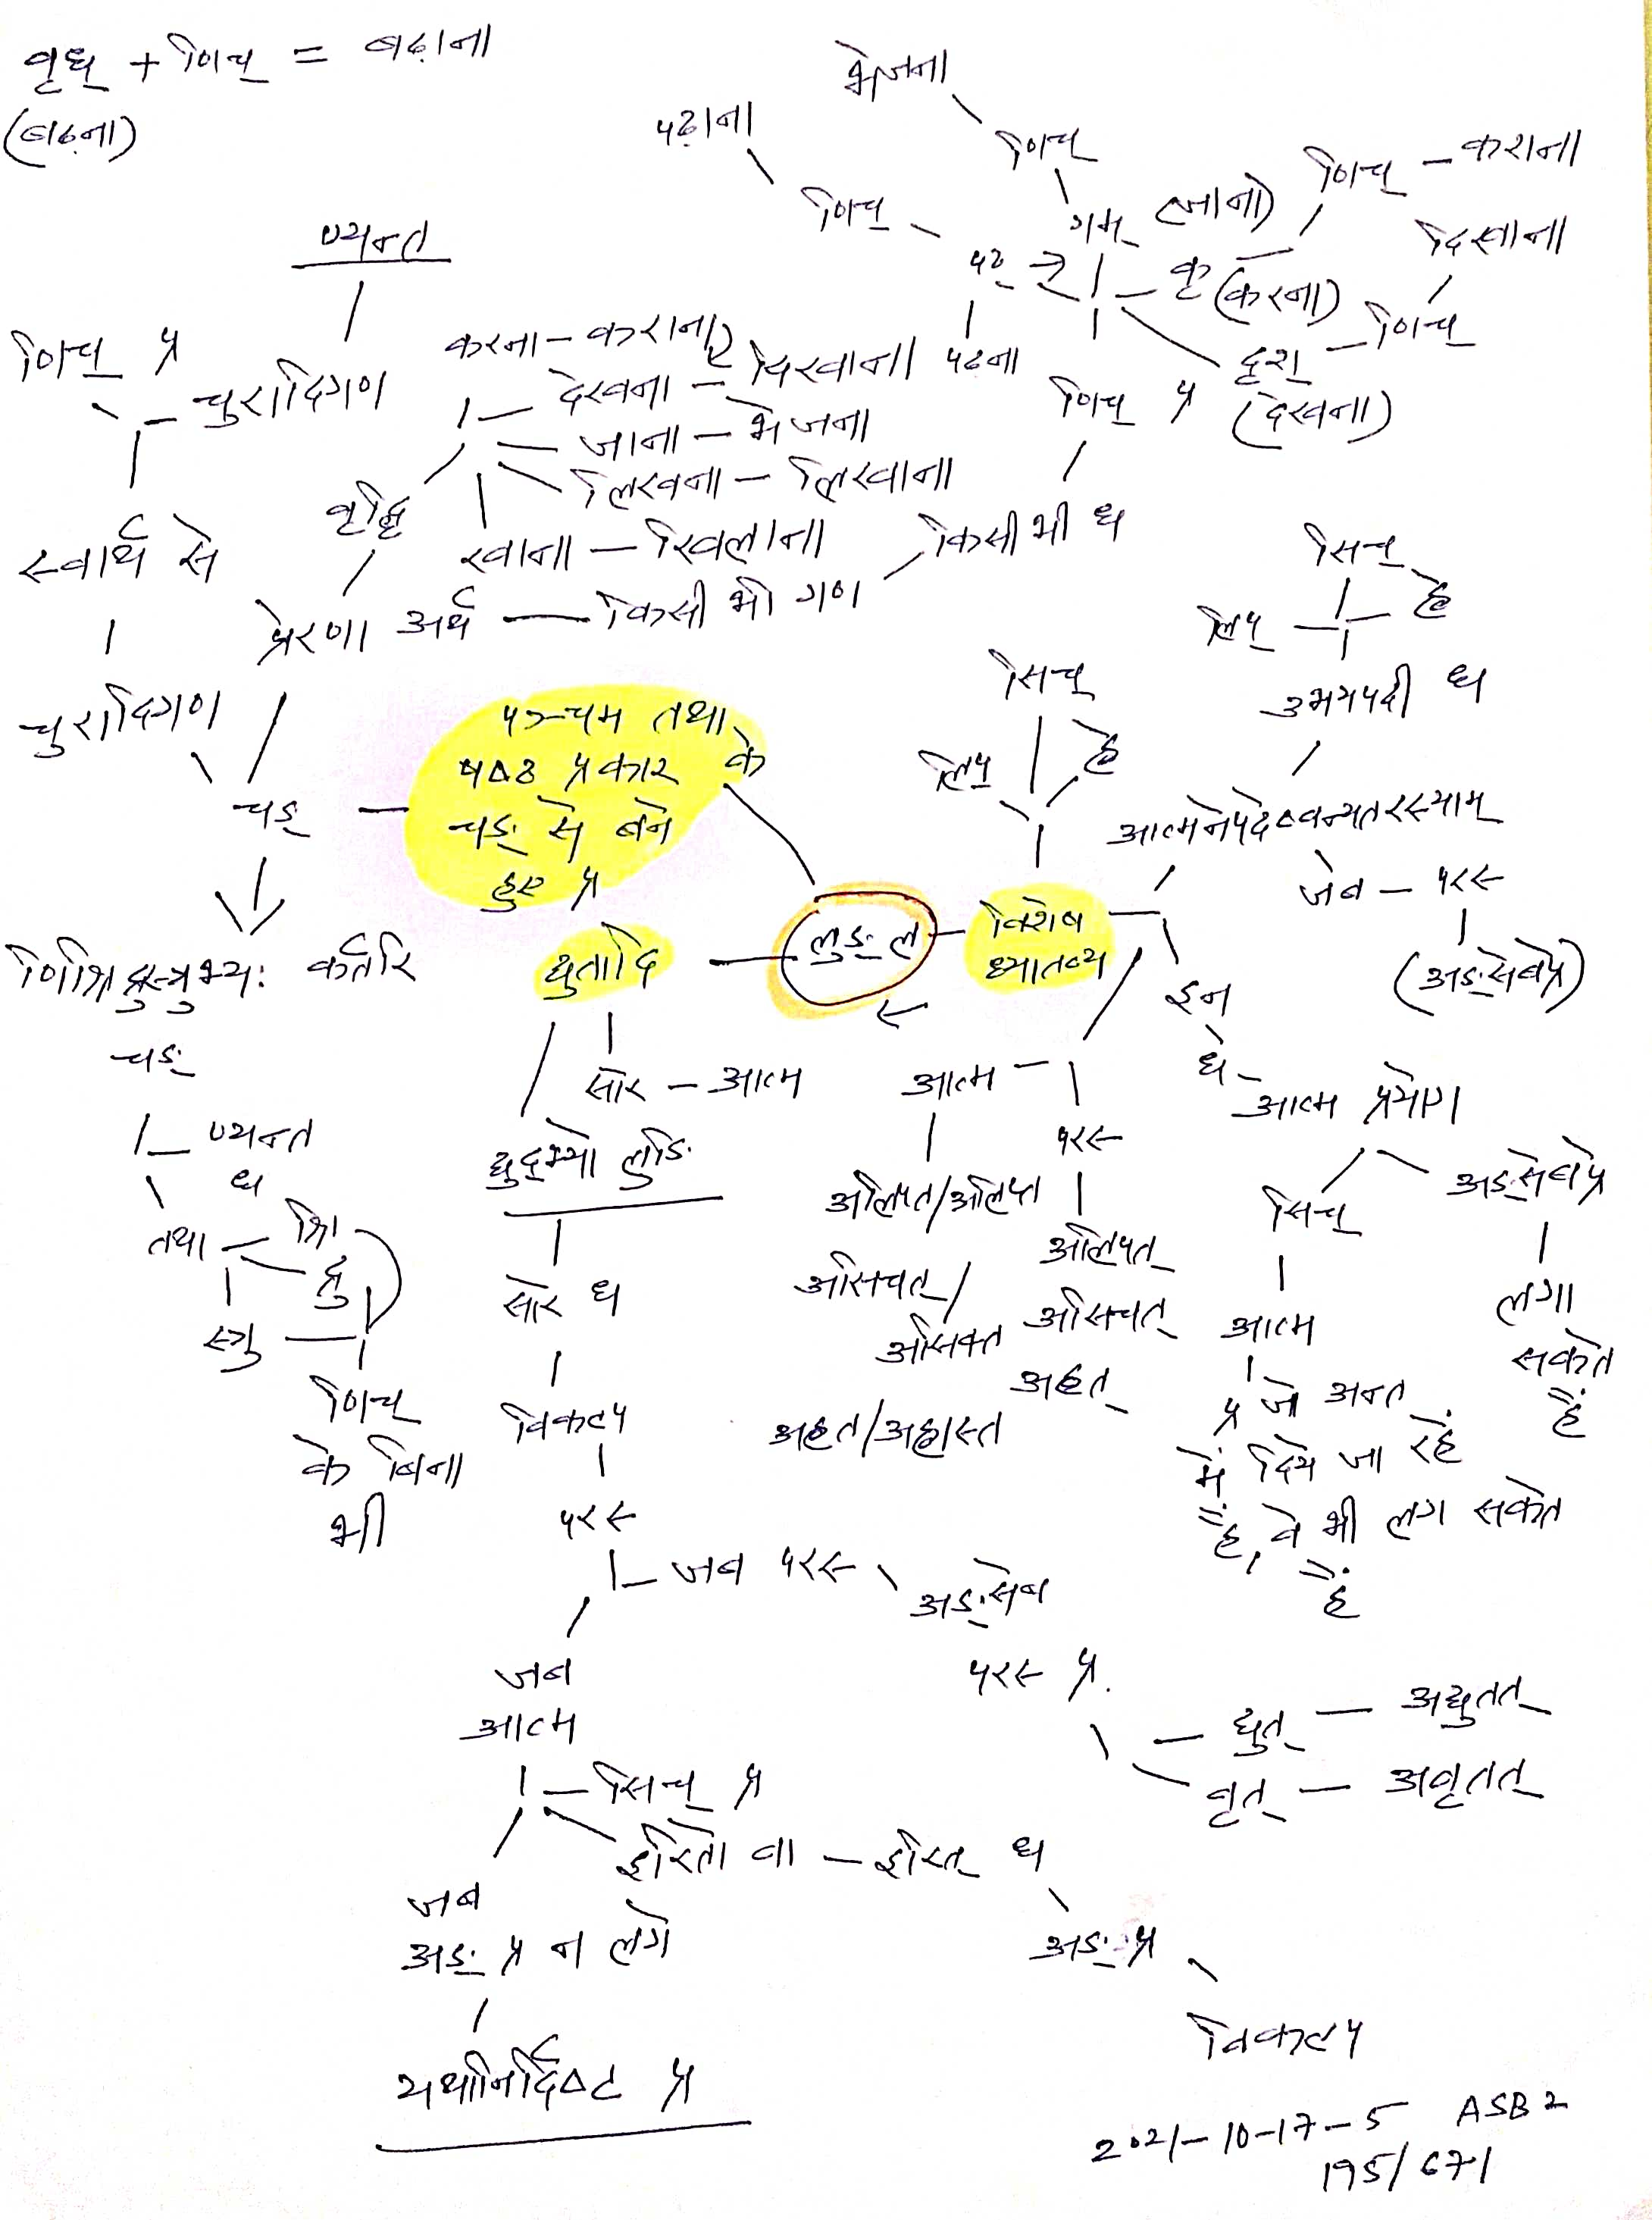 वृध् + णिच् = बढ़ाना
(बढ़ना)
भेजना
पढ़ाना
णिच्
णिच् - कराना
णिच्
गम् (जाना)
दिखाना
ण्यन्त
पठ् →
कृ (करना)
णिच्
पढना
दृश्
(देखना)
णिच् प्र
चुरादिगण
करना - कराना
देखना - दिखाना
जाना - भेजना
लिखना - लिखाना
खाना - खिलाना
णिच् प्र
वृद्धि
स्वार्थ से
प्रेरणा अर्थ - किसी भी गण
किसी भी ध
चुरादिगण
सिच्
लिप्
ह्वे
उभयपदी ध
सिच्
लिप्
ह्वे
पञ्चम तथा
षष्ठ प्रकार के
चङ् से बने
हुए प्र
चङ्
आत्मनेपदेष्वन्यतरस्याम्
जब - परस्
(अङ् सेबप्र)
णिश्रिद्रुस्रुभ्यः कर्तरि
चङ्
द्युतादि
लुङ् ल
विशेष
ध्यातव्य
इन
ध -
आत्म प्रयोग
ण्यन्त
ध
तथा
श्रि
द्रु
स्रु
णिच्
के बिना
भी
सोर - आत्म
द्युद्भ्यो लुङि
सोर ध
विकल्प
परस्
आत्म
परस्
अलिपत/अलिप्त
अलिपत्
असिचत/
असिक्त
असिचत्
अह्वत्
अह्वत/अह्वास्त
सिच्
अङ् सेबप्र
आत्म
लगा
सकते
हैं
प्र जो अन्त
में दिये जा रहे
हैं, वे भी लग सकते
हैं
जब परस्
अङ् सेब
परस् प्र.
जब
आत्म
द्युत् - अद्युतत्
वृत् - अवृतत्
सिच् प्र
इरितो वा - इरित् ध
जब
अङ् प्र न लगे
अङ् प्र
यथानिर्दिष्ट प्र
विकल्प
2021-10-17-5 ASB2
195/671